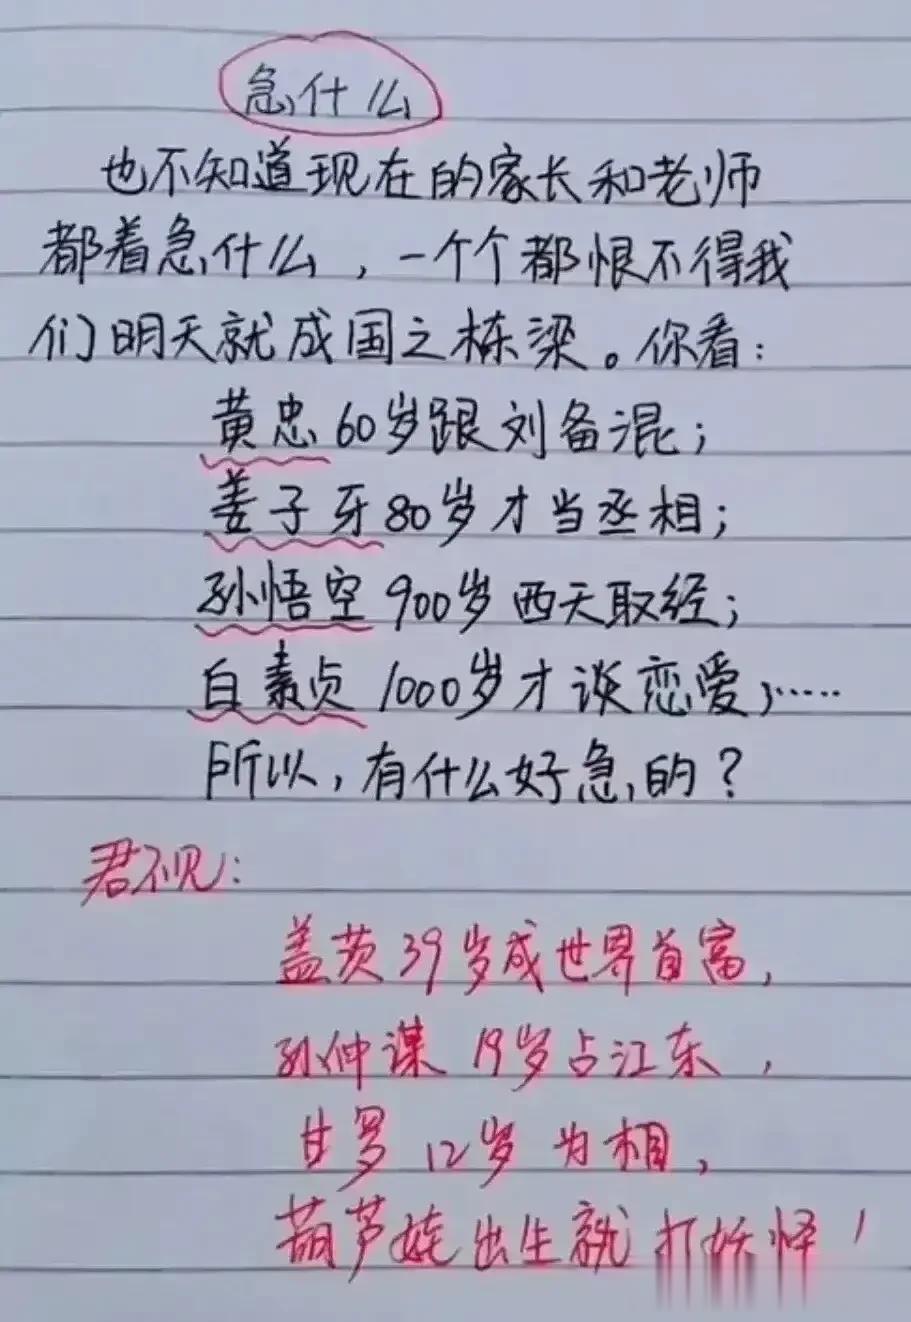 急什么
也不知道现在的家长和老师
都着急什么，一个个都恨不得我
们明天就成国之栋梁。你看：
黄忠60岁跟刘备混；
姜子牙80岁才当丞相；
孙悟空900岁西天取经；
白素贞1000岁才谈恋爱，……
所以，有什么好急的？
君不见：
盖茨39岁成世界首富，
孙仲谋19岁占江东，
甘罗12岁为相，
葫芦娃出生就打妖怪！